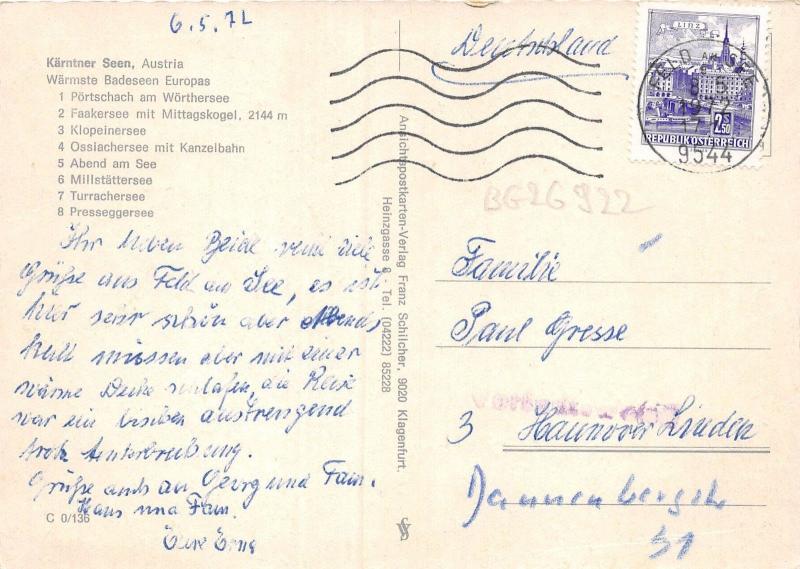 6.5.72
Kärntner Seen, Austria
Wärmste Badeseen Europas
1 Pörtschach am Wörthersee
2 Faakersee mit Mittagskogel, 2144 m
3 Klopeinersee
4 Ossiachersee mit Kanzelbahn
5 Abend am See
6 Millstättersee
7 Turrachersee
8 Presseggersee
Ihr lieben Beide viele
Grüße aus Feld am See, es ist
hier sehr schön aber Abends
kalt müssen aber mit einer
wärme Decke schlafen, die Reise
war ein bisschen anstrengend
trotz Unterbrechung.
Grüße auch an Georg und Fam.
Hans und Fam.
Erna
C 0/136
Ansichtspostkarten-Verlag Franz Schilcher, 9020 Klagenfurt.
Heinzgasse Tel. (04222) 85228
Deutschland
LINZ
2.50
REPUBLIK ÖSTERREICH
FELD AM SEE
1972
9544
BG26922
Familie
Paul Gresse
3 Hannover Linden
Dannenbergstr
31